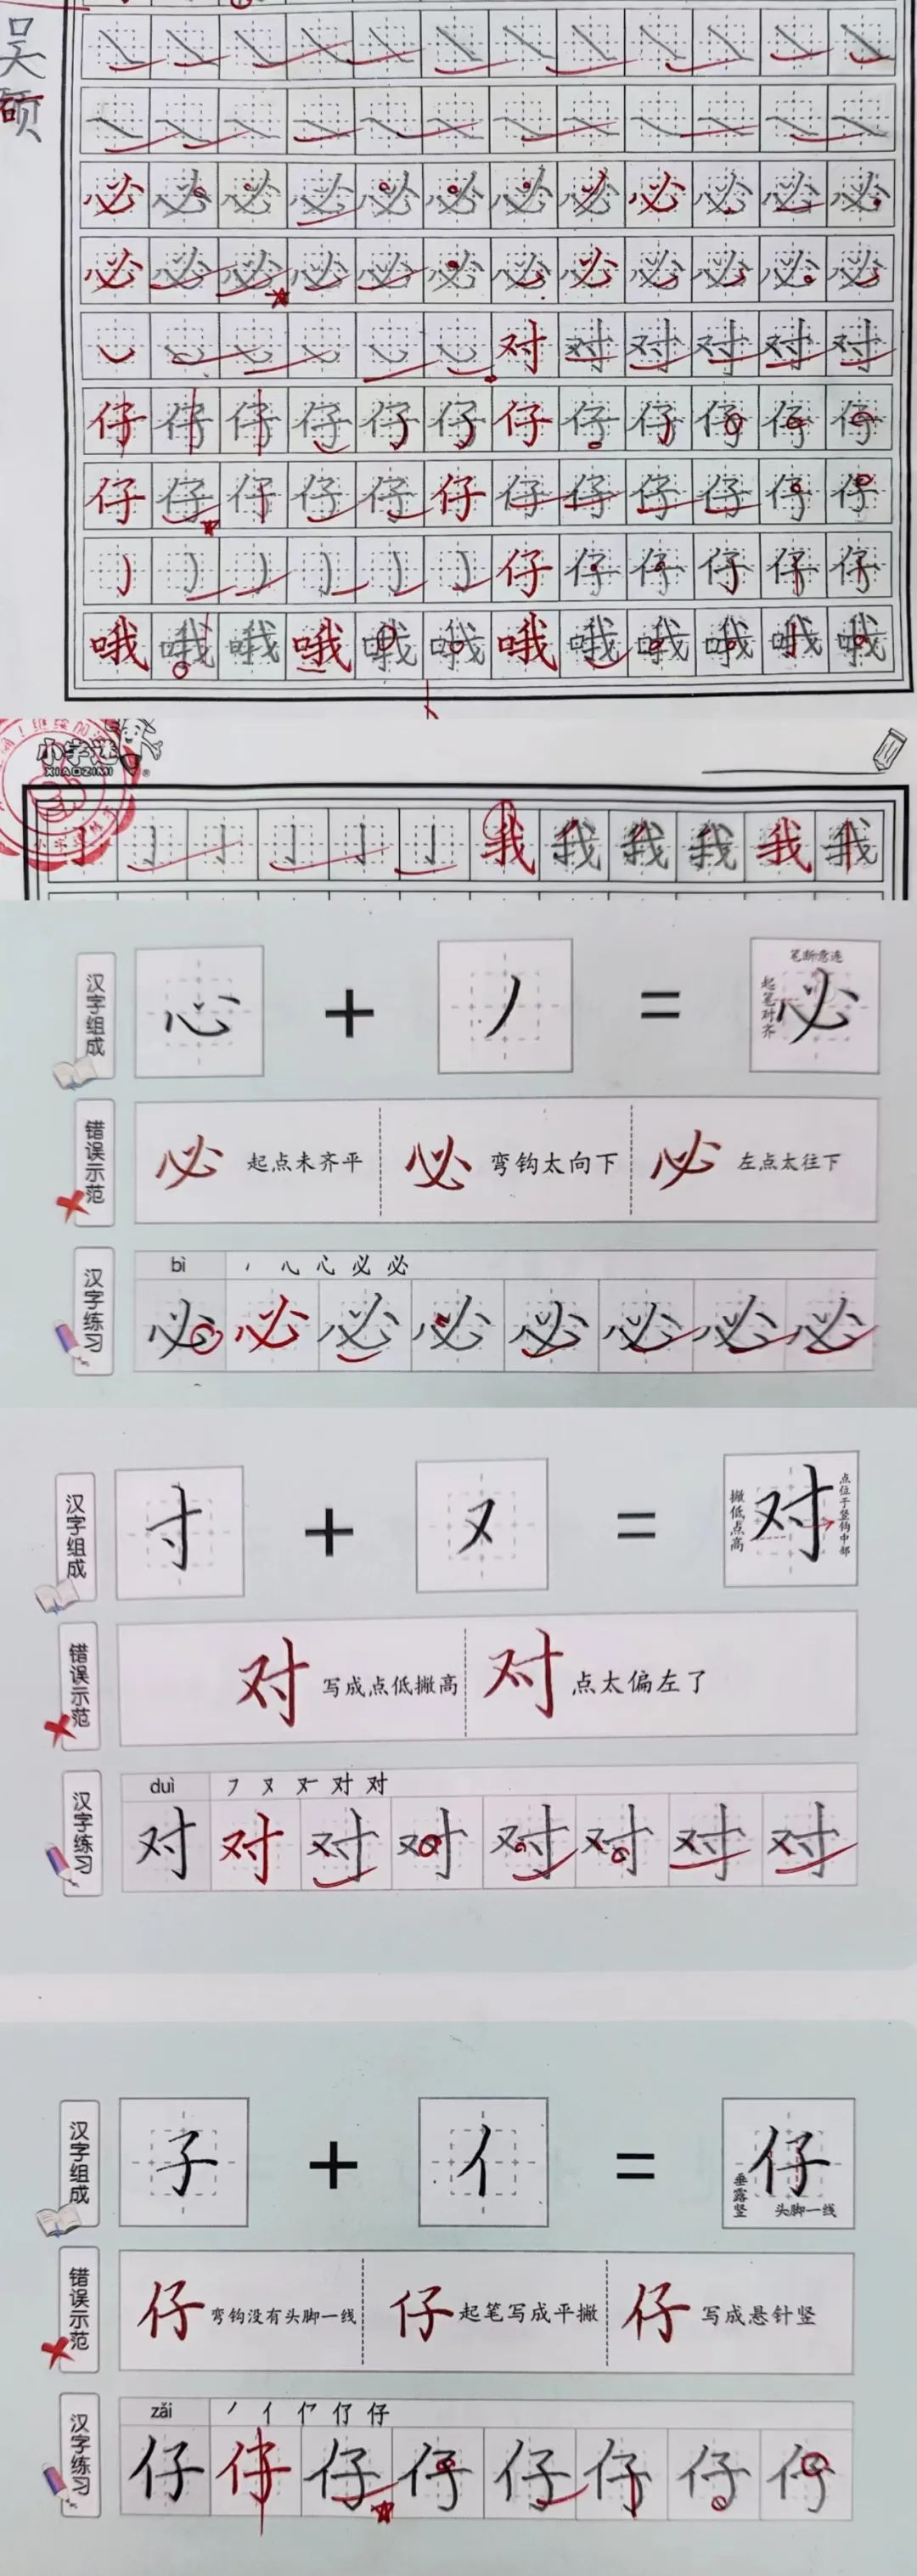 吴
硕
必 必 必 必 必 必 必 必 必 必 必 必
必 必 必 必 必 必 必 必 必 必 必 必
对 对 对 对 对 对
仔 仔 仔 仔 仔 仔 仔 仔 仔 仔 仔 仔
仔 仔 仔 仔 仔 仔 仔 仔 仔 仔 仔 仔
仔 仔 仔 仔 仔 仔
哦 哦 哦 哦 哦 哦 哦 哦 哦 哦 哦 哦
小字迷
XIAOZIMI
我 我 我 我 我 我
汉字组成
心 + 丿 = 必
笔断意连
起笔对齐
错误示范
必 起点未齐平
必 弯钩太向下
必 左点太往下
汉字练习
bì
心 必 必
必 必 必 必 必 必 必 必
汉字组成
寸 + 又 = 对
撇低点高
点位于竖钩中部
错误示范
对 写成点低撇高
对 点太偏左了
汉字练习
duì
フ 又 对 对
对 对 对 对 对 对 对 对
汉字组成
子 + 亻 = 仔
垂露竖
头脚一线
错误示范
仔 弯钩没有头脚一线
仔 起笔写成平撇
仔 写成悬针竖
汉字练习
zǎi
丿 亻 仔
仔 仔 仔 仔 仔 仔 仔 仔